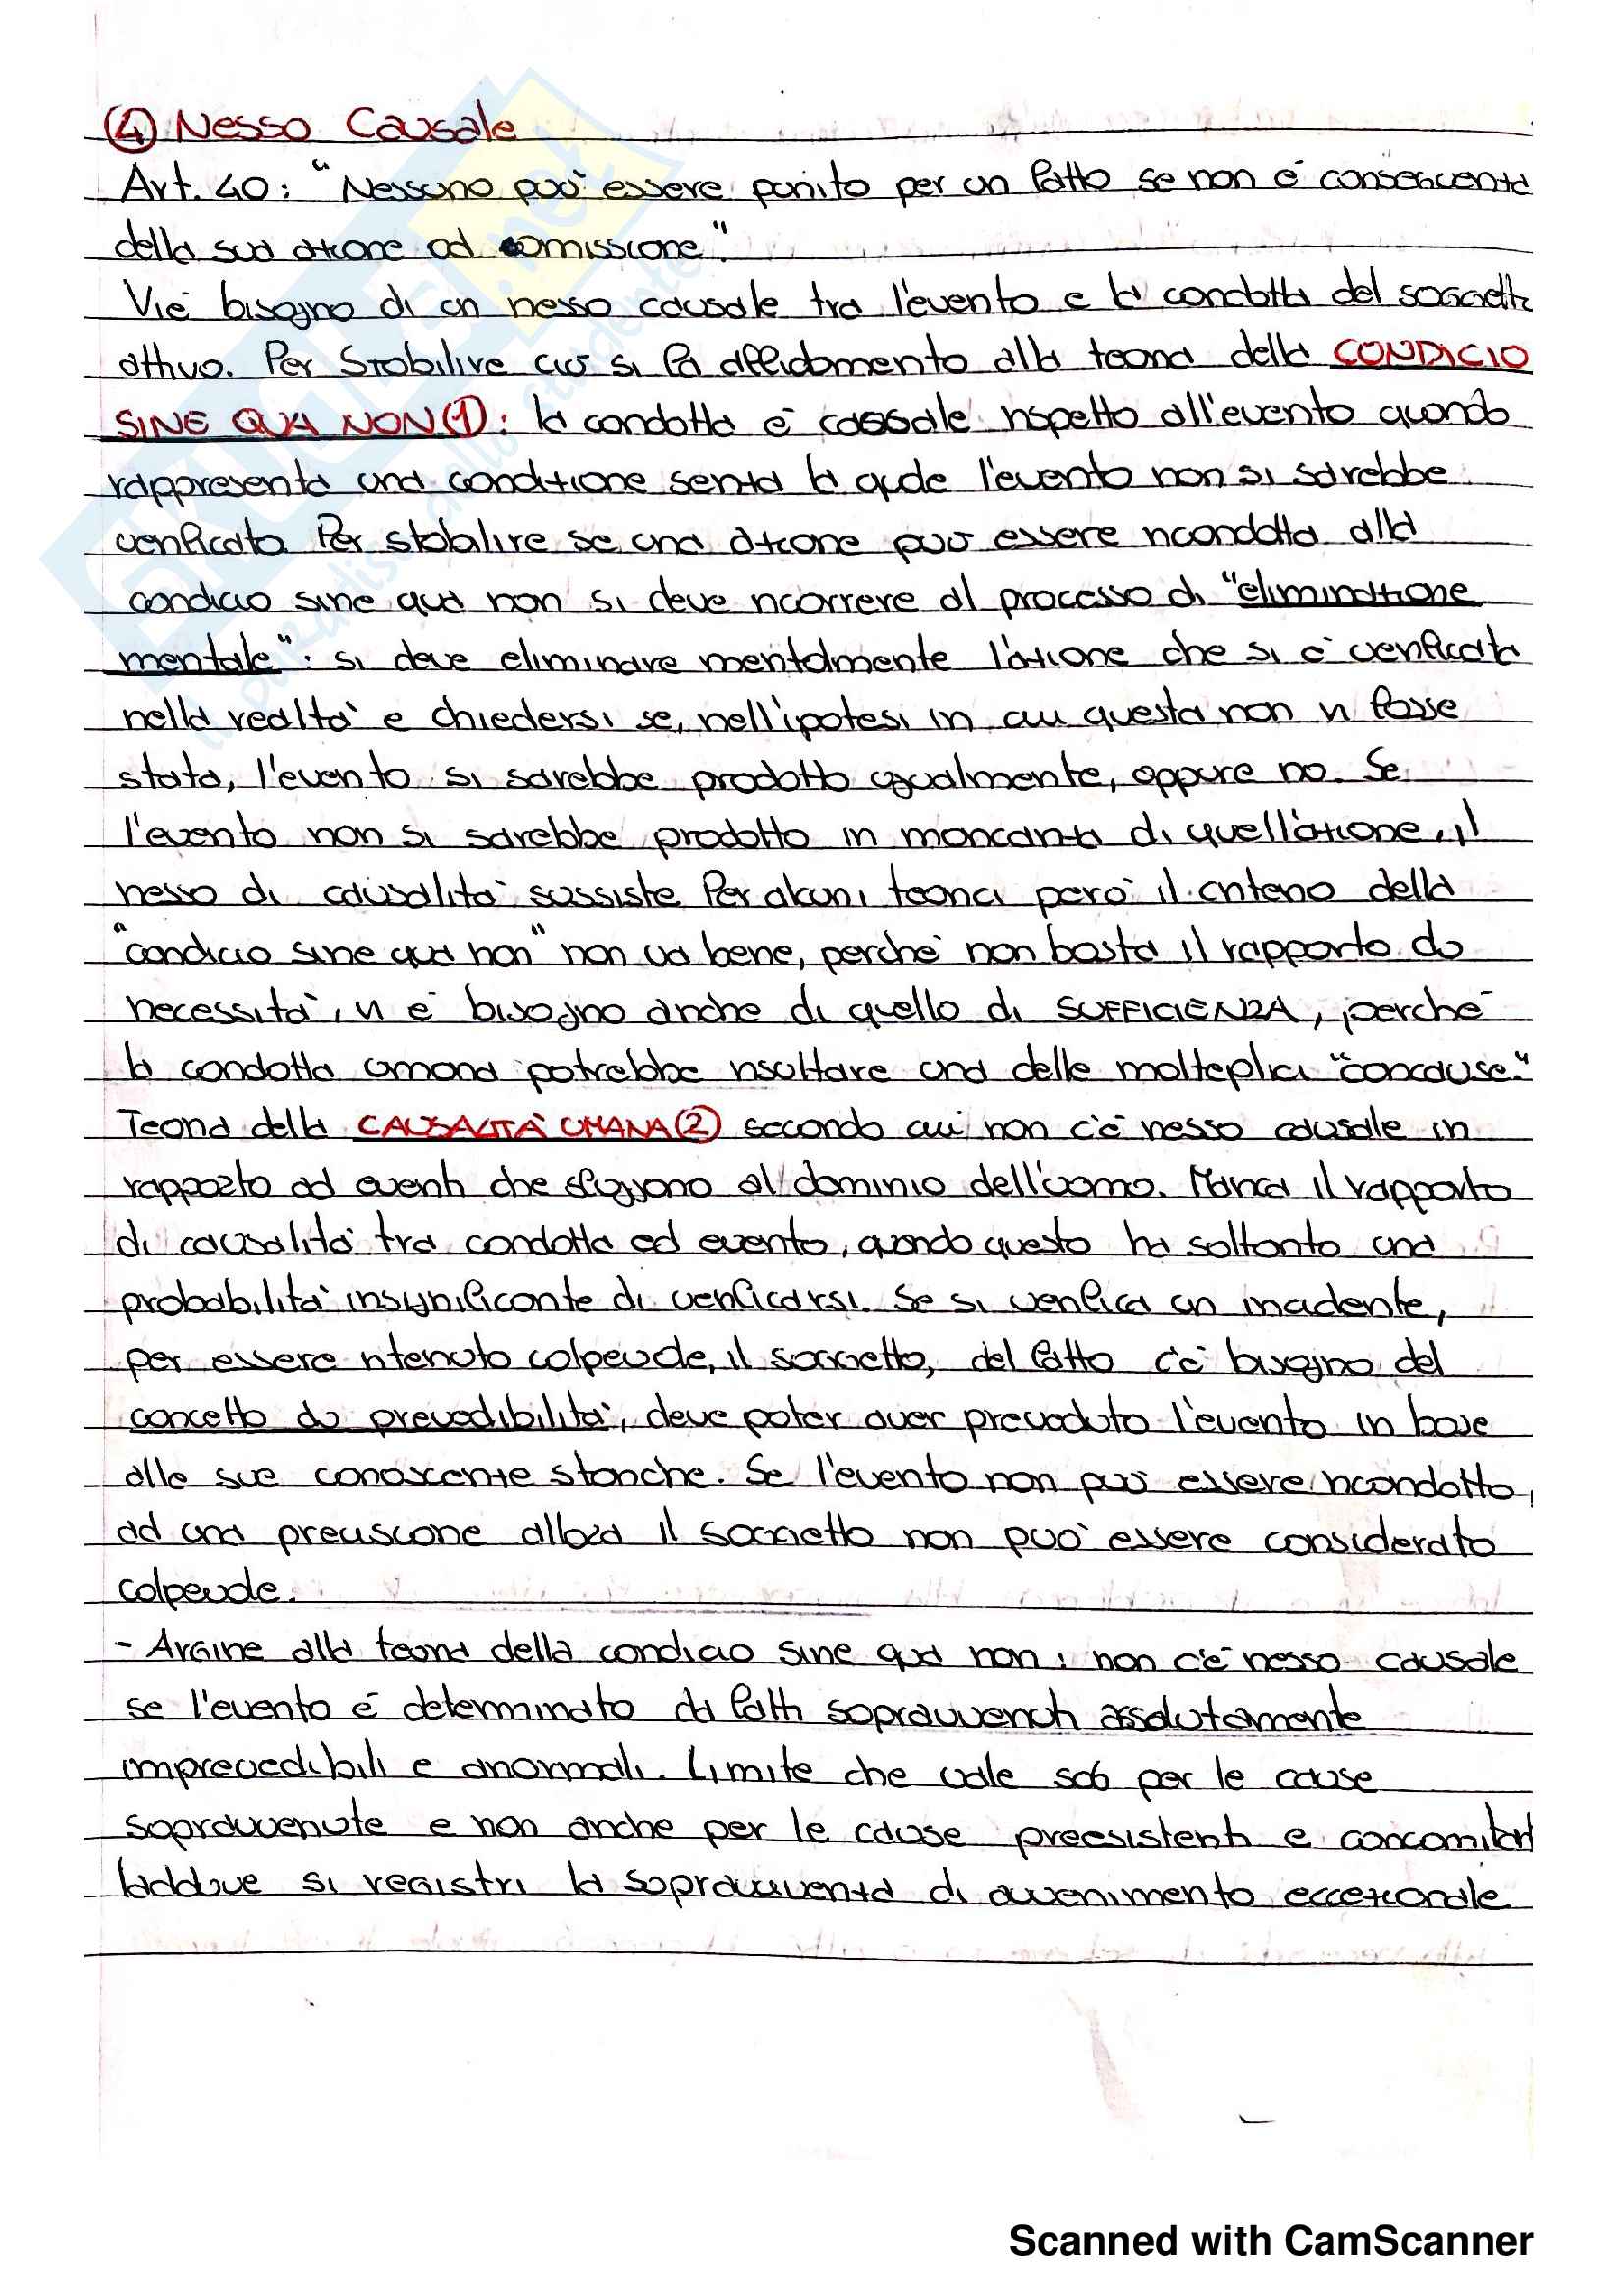 ④ Nesso Causale
Art. 40: "Nessuno può essere punito per un fatto se non è conseguenza
della sua azione od omissione."
Vi è bisogno di un nesso causale tra l'evento e la condotta del soggetto
attivo. Per stabilire ciò si fa affidamento alla teoria della CONDICIO
SINE QUA NON ①: la condotta è causale rispetto all'evento quando
rappresenta una condizione senza la quale l'evento non si sarebbe
verificato. Per stabilire se una azione può essere ricondotta alla
condicio sine qua non si deve ricorrere al processo di "eliminazione
mentale": si deve eliminare mentalmente l'azione che si è verificata
nella realtà e chiedersi se, nell'ipotesi in cui questa non vi fosse
stata, l'evento si sarebbe prodotto ugualmente, oppure no. Se
l'evento non si sarebbe prodotto in mancanza di quell'azione, il
nesso di causalità sussiste. Per alcuni teorici però il criterio della
"condicio sine qua non" non va bene, perché non basta il rapporto di
necessità, vi è bisogno anche di quello di SUFFICIENZA, perché
la condotta umana potrebbe risultare una delle molteplici "concause."
Teoria della CAUSALITÀ UMANA ② secondo cui non c'è nesso causale in
rapporto ad eventi che sfuggono al dominio dell'uomo. Manca il rapporto
di causalità tra condotta ed evento, quando questo ha soltanto una
probabilità insignificante di verificarsi. Se si verifica un incidente,
per essere ritenuto colpevole, il soggetto, del fatto c'è bisogno del
concetto di prevedibilità, deve poter aver preveduto l'evento in base
alle sue conoscenze storiche. Se l'evento non può essere ricondotto,
ad una previsione allora il soggetto non può essere considerato
colpevole.
- Argine alla teoria della condicio sine qua non: non c'è nesso causale
se l'evento è determinato da fatti sopravvenuti assolutamente
imprevedibili e anormali. Limite che vale solo per le cause
sopravvenute e non anche per le cause preesistenti e concomitanti
laddove si registri la sopravvivenza di avvenimento eccezionale
SKUOLA.net
il paradiso dello studente
Scanned with CamScanner